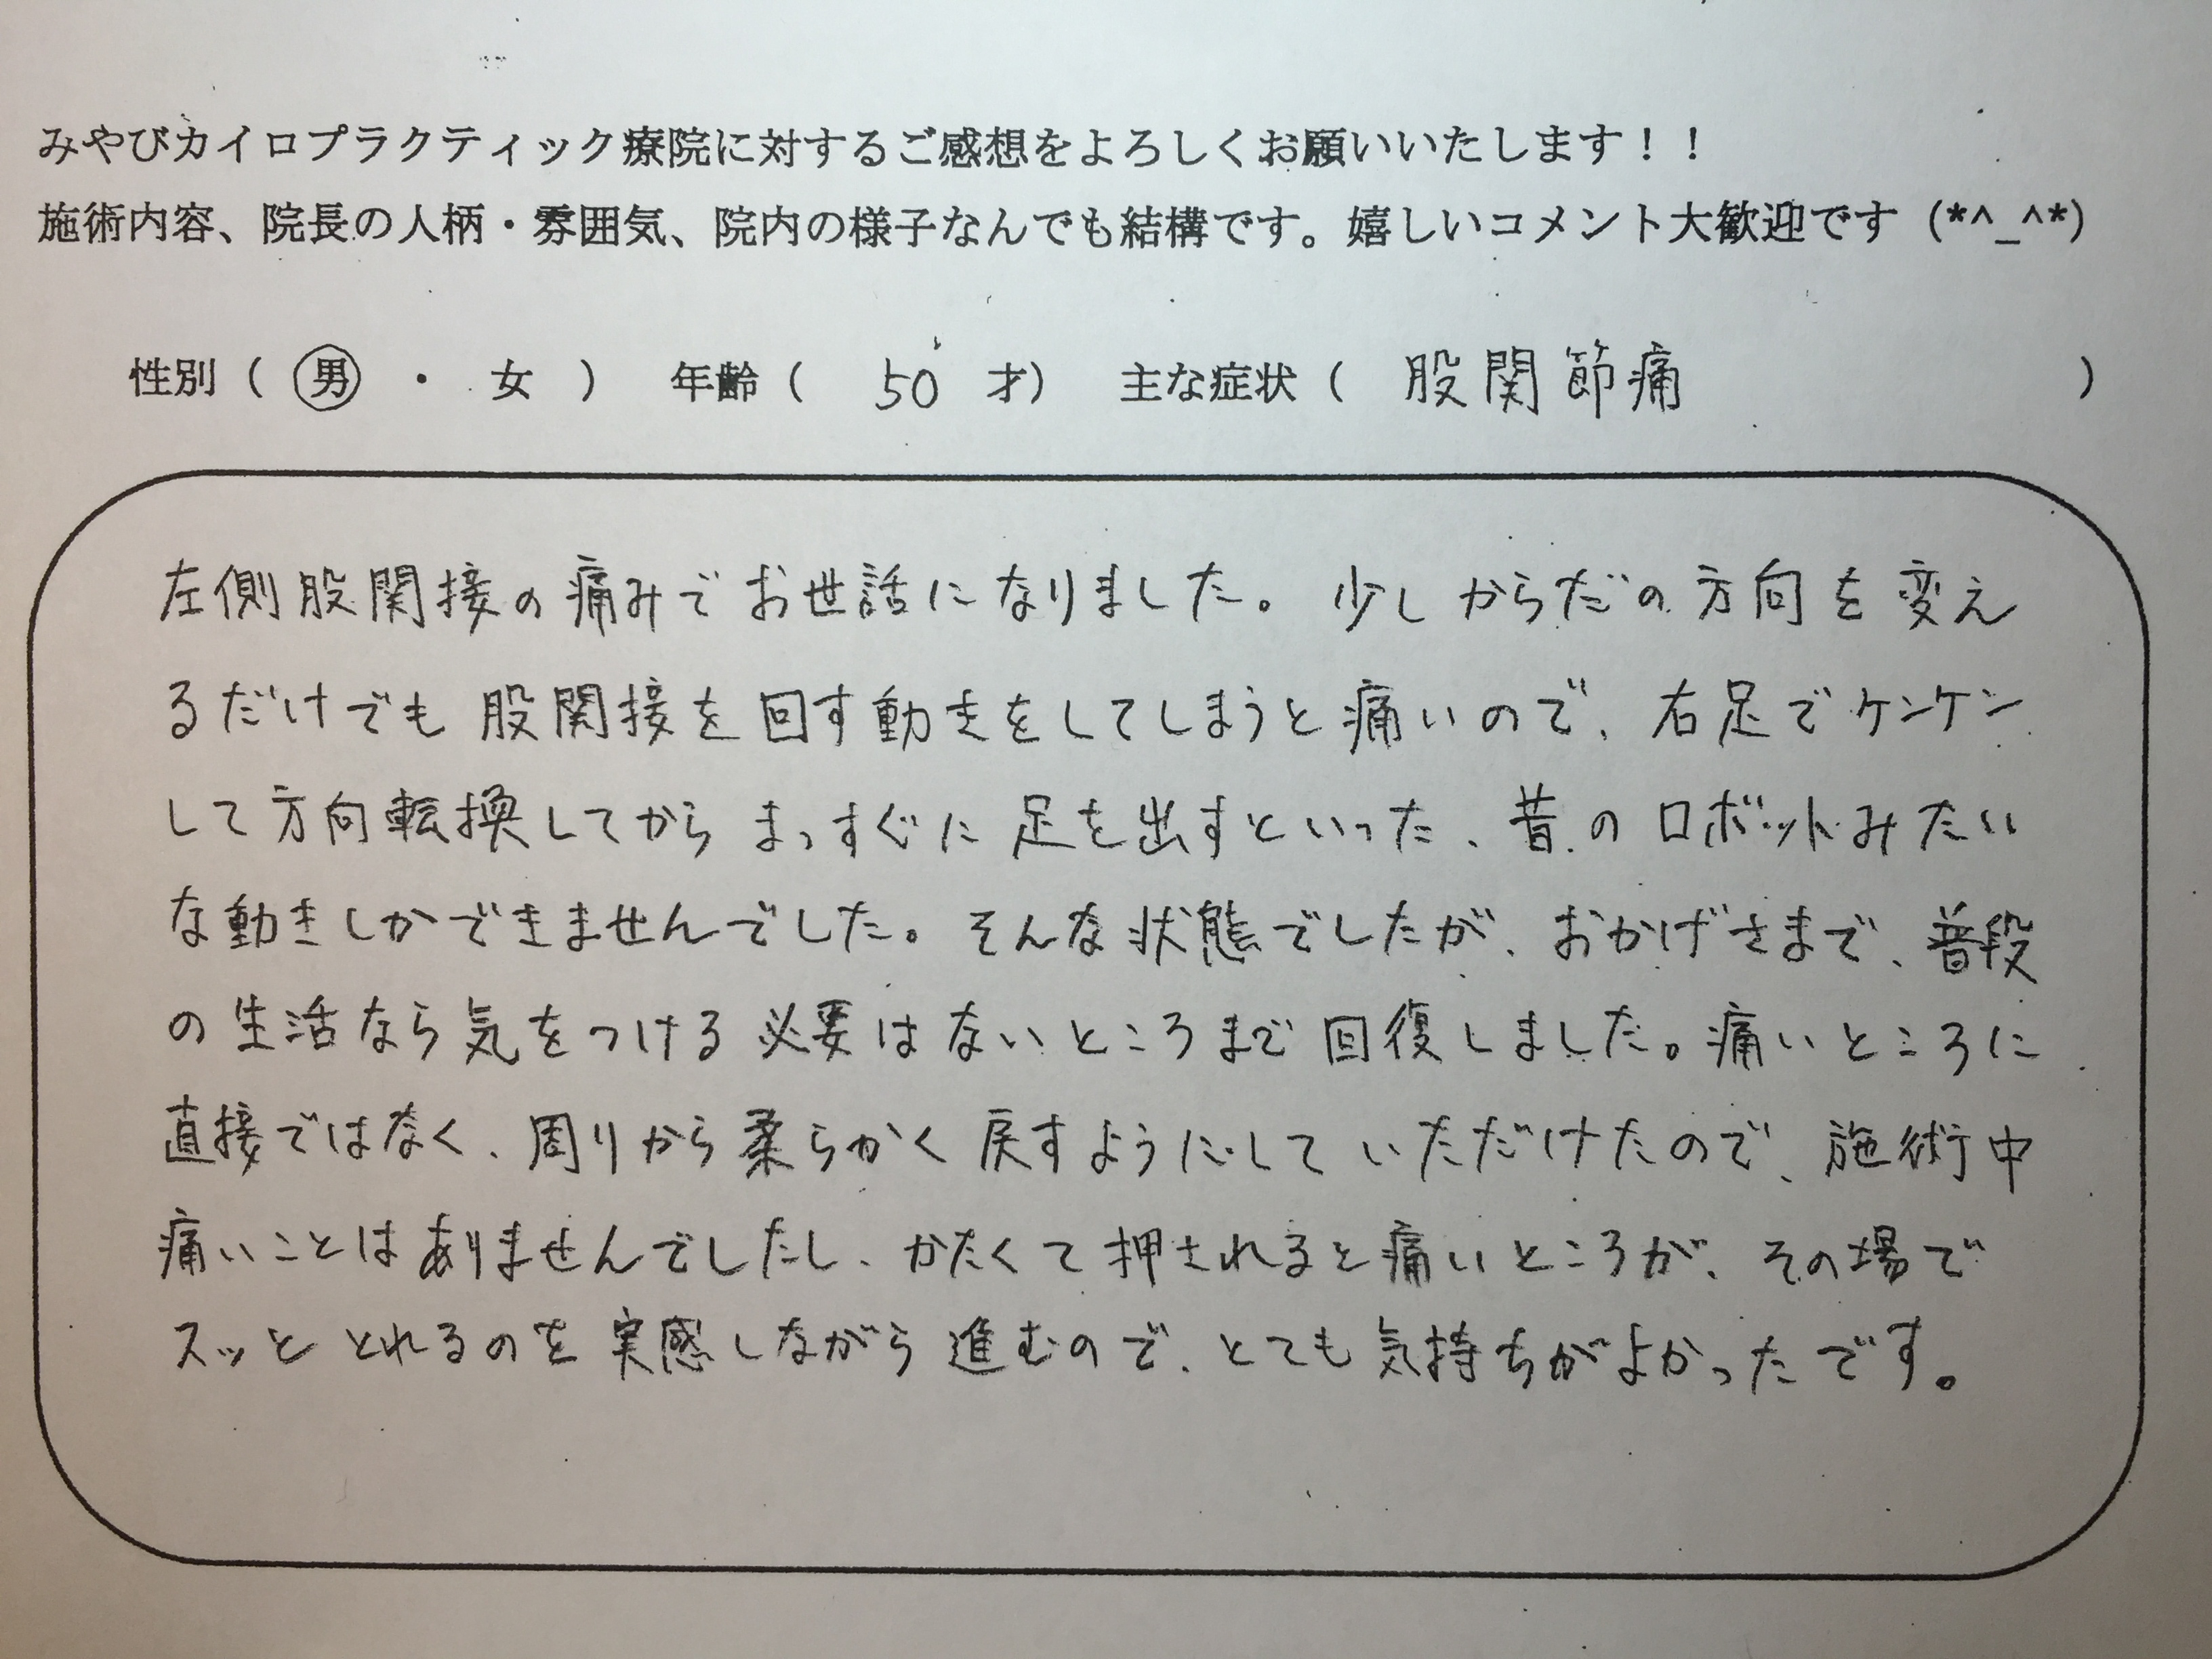 みやびカイロプラクティック療院に対するご感想をよろしくお願いいたします！！
施術内容、院長の人柄・雰囲気、院内の様子なんでも結構です。嬉しいコメント大歓迎です（*^_^*）
性別（ 男 ・ 女 ） 年齢（ 50 才） 主な症状（ 股関節痛 ）
左側股関接の痛みでお世話になりました。少しからだの方向を変え
るだけでも股関接を回す動きをしてしまうと痛いので、右足でケンケン
して方向転換してからまっすぐに足を出すといった、昔のロボットみたい
な動きしかできませんでした。そんな状態でしたが、おかげさまで、普段
の生活なら気をつける必要はないところまで回復しました。痛いところに
直接ではなく、周りから柔らかく戻すようにしていただけたので、施術中
痛いことはありませんでしたし、かたくて押されると痛いところが、その場で
スッととれるのを実感しながら進むので、とても気持ちがよかったです。